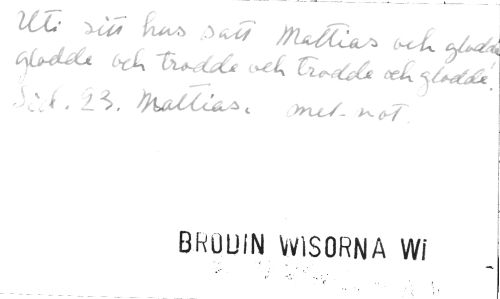 Uti sitt hus satt Mattias och glodde
glodde och trodde och trodde och glodde.
Sid. 23. Mattias. mel-not.
BRODIN WISORNA WI